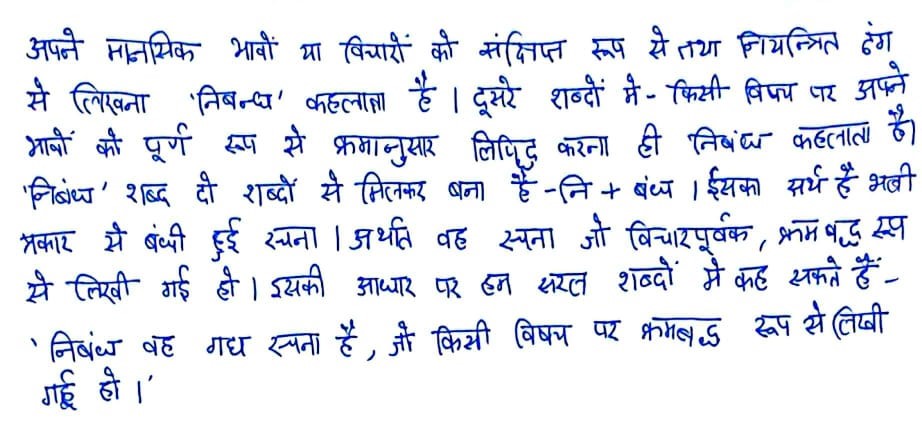 अपने मानसिक भावों या विचारों को संक्षिप्त रूप से तथा नियन्त्रित ढंग
से लिखना 'निबन्ध' कहलाता है । दूसरे शब्दों में - किसी विषय पर अपने
भावों को पूर्ण रूप से क्रमानुसार लिपिद्ध करना ही निबंध कहलाता है।
'निबंध' शब्द दो शब्दों से मिलकर बना है - नि + बंध । ईसका अर्थ है भली
प्रकार से बंधी हुई रचना । अर्थात वह रचना जो विचारपूर्वक, क्रमबद्ध रूप
से लिखी गई हो । इसकी आधार पर हम सरल शब्दों में कह सकते हैं -
'निबंध वह गध रचना है, जो किसी विषय पर क्रमबद्ध रूप से लिखी
गई हो ।'